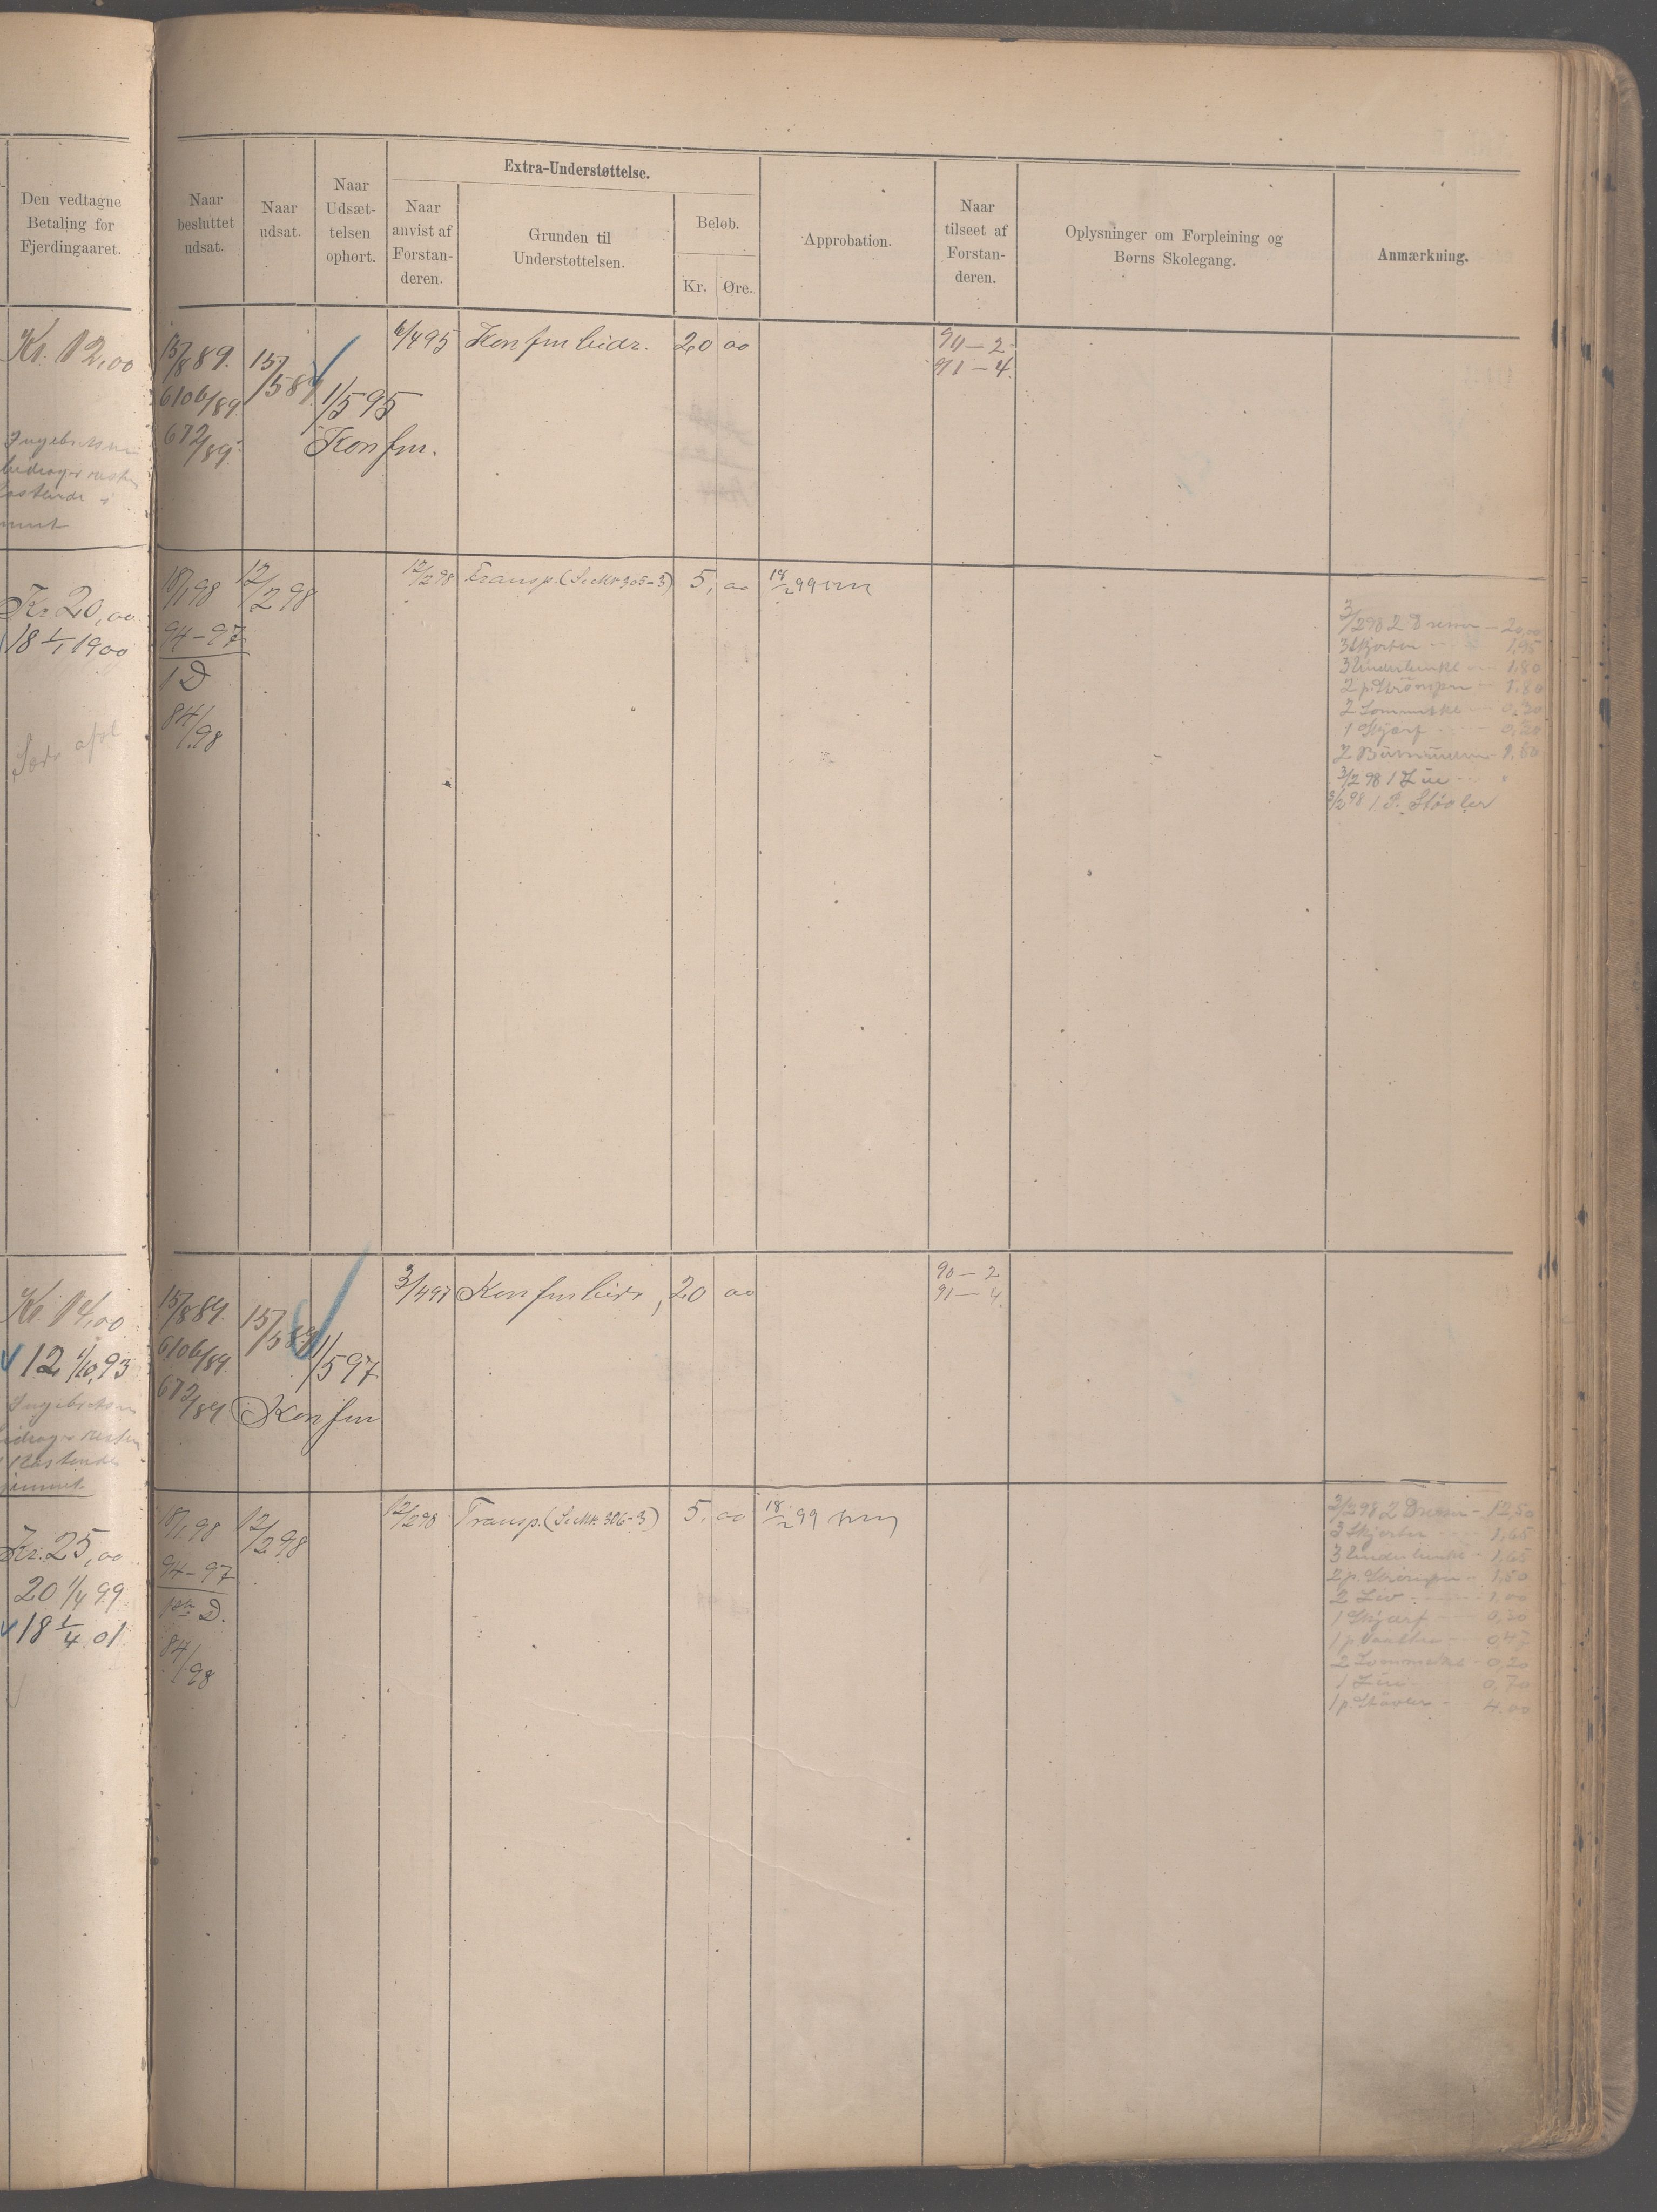 Den vedtagne
Betaling for
Fjerdingaaret.
Naar
besluttet
udsat.
Naar
udsat.
Naar
Udsæt-
telsen
ophørt.
Extra-Understøttelse.
Naar
anvist af
Forstan-
deren.
Grunden til
Understøttelsen.
Beløb.
Kr. Øre.
Approbation.
Naar
tilseet af
Forstan-
deren.
Oplysninger om Forpleining og
Børns Skolegang.
Anmærkning.
Kr. 12,00
15/8 89. 15/5 89 1/5 95
6106/89
672/89. Konfm.
6/4 95 Konfmbidr. 20 00
90 - 2
91 - 4
Ingebretsen
bidrager resten
Kr. 20,00
18 1/1 1900
18/1 98 12/2 98
94-97
1 D
84/98
12/2 98 Transp. (Se Nr 305-3) 5,00 18/2 99
3/2 98 2 Dresser - 20,00
3 Skjorter - 1,95
3 Underbenkl - 1,80
2 p. Strömper - 1,80
2 Lommetkl - 0,30
1 Skjærf - 0,20
2 - 1,80
3/2 98 1 Lue
3/2 98 1 P. Støvler
Kr. 14,00
12 1/10 93
15/8 89. 15/5 89 1/5 97
6106/89.
672/89 Konfm
3/4 97 Konfmbidr, 20 00
90 - 2
91 - 4
Ingebretsen
bidrager resten
Kr. 25,00
20 1/4 99
18 1/4 01
18/1 98 12/2 98
94-97
1ste D.
84/98
12/2 98 Transp. (Se Nr. 306-3) 5,00 18/2 99
3/2 98 2 Dresser - 12,50
3 Skjorter - 1,65
3 Underbenkl - 1,65
2 p. Strömper - 1,50
2 Liv - 1,00
1 Skjærf - 0,20
1 p. Vanter - 0,47
2 Lommetkl - 0,20
1 Lue - 0,70
1 p. Støvler - 4.00